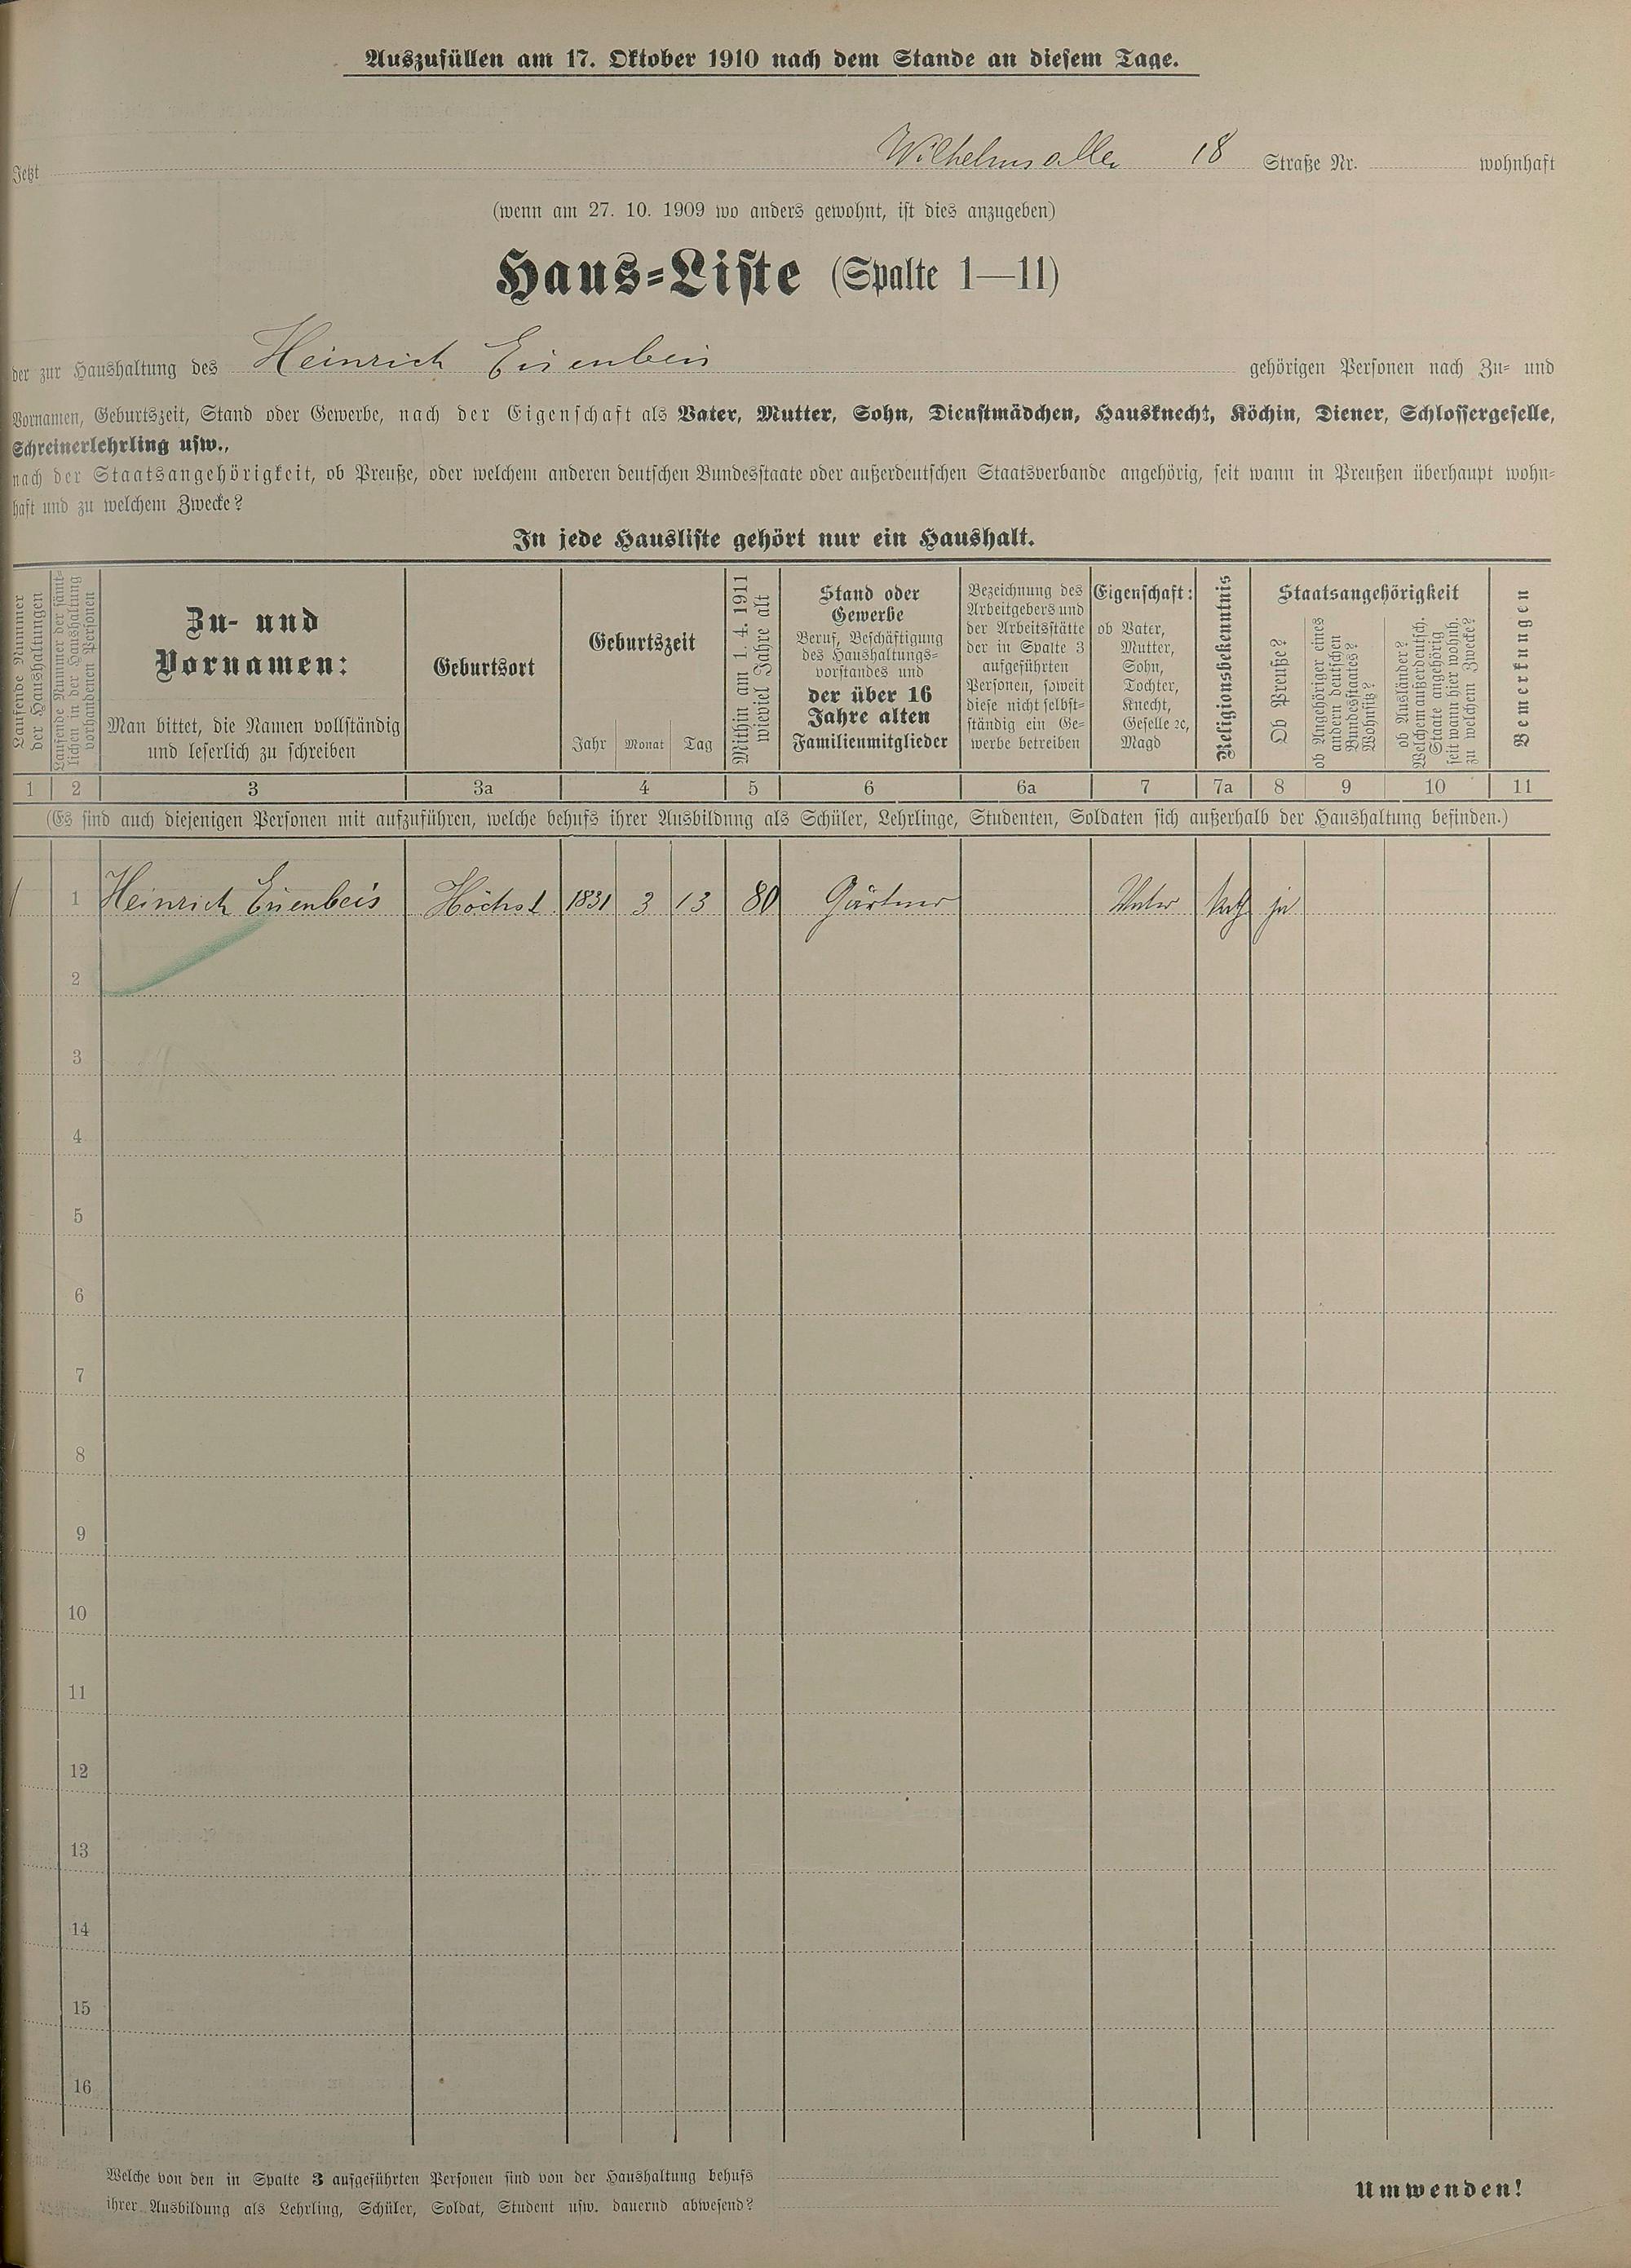 Auszufüllen am 17. Oktober 1910 nach dem Stande an diesem Tage.
Jetzt Wilhelmsallee 18 Straße Nr. wohnhaft
(wenn am 27. 10. 1909 wo anders gewohnt, ist dies anzugeben)
Haus-Liste (Spalte 1—11)
der zur Haushaltung des Heinrich Eisenbeis gehörigen Personen nach Zu- und
Vornamen, Geburtszeit, Stand oder Gewerbe, nach der Eigenschaft als Vater, Mutter, Sohn, Dienstmädchen, Hausknecht, Köchin, Diener, Schlossergeselle,
Schreinerlehrling usw.,
nach der Staatsangehörigkeit, ob Preuße, oder welchem anderen deutschen Bundesstaate oder außerdeutschen Staatsverbande angehörig, seit wann in Preußen überhaupt wohn-
haft und zu welchem Zwecke?
In jede Hausliste gehört nur ein Haushalt.
Laufende Nummer
der Haushaltungen
Laufende Nummer der sämt-
lichen in der Haushaltung
vorhandenen Personen
Zu- und
Vornamen:
Man bittet, die Namen vollständig
und leserlich zu schreiben
Geburtsort
Geburtszeit
Jahr Monat Tag
Mithin am 1. 4. 1911
wieviel Jahre alt
Stand oder
Gewerbe
Beruf, Beschäftigung
des Haushaltungs-
vorstandes und
der über 16
Jahre alten
Familienmitglieder
Bezeichnung des
Arbeitgebers und
der Arbeitsstätte
der in Spalte 3
aufgeführten
Personen, soweit
diese nicht selbst-
ständig ein Ge-
werbe betreiben
Eigenschaft:
ob Vater,
Mutter,
Sohn,
Tochter,
Knecht,
Geselle ꝛc,
Magd
Religionsbekenntnis
Staatsangehörigkeit
Ob Preuße?
ob Angehöriger eines
andern deutschen
Bundesstaates?
Wohnsitz?
ob Ausländer?
Welchem außerdeutsch.
Staate angehörig
seit wann hier wohnh.
zu welchem Zwecke?
Bemerkungen
1 2 3 3a 4 5 6 6a 7 7a 8 9 10 11
(Es sind auch diejenigen Personen mit aufzuführen, welche behufs ihrer Ausbildung als Schüler, Lehrlinge, Studenten, Soldaten sich außerhalb der Haushaltung befinden.)
1 1 Heinrich Eisenbeis Höchst 1831 3 13 80 Gärtner Vater kath ja
2
3
4
5
6
7
8
9
10
11
12
13
14
15
16
Welche von den in Spalte 3 aufgeführten Personen sind von der Haushaltung behufs
ihrer Ausbildung als Lehrling, Schüler, Soldat, Student usw. dauernd abwesend?
Umwenden!